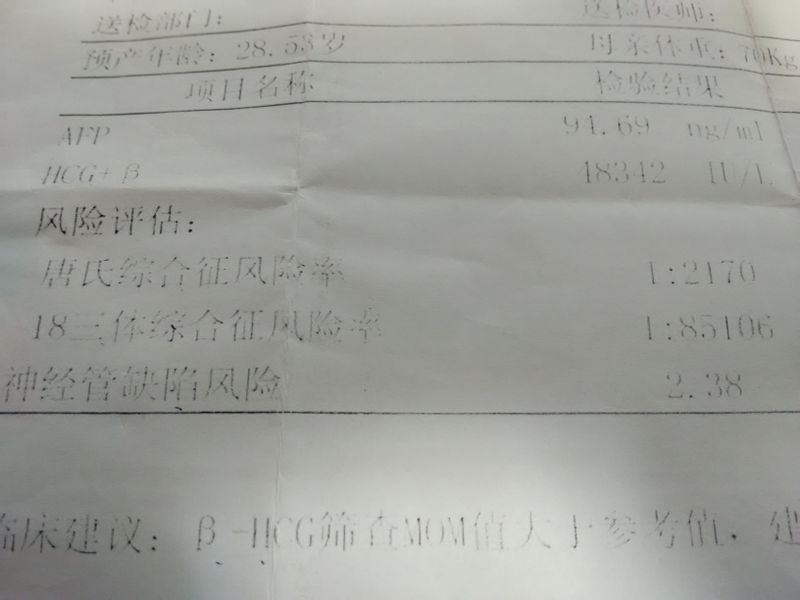 送检部门： 送检医师：
预产年龄：28.53岁 母亲体重：70Kg
项目名称 检验结果
AFP 94.69 ng/ml
HCG+β 48342 IU/L
风险评估：
唐氏综合征风险率 1:2170
18三体综合征风险率 1:85106
神经管缺陷风险 2.38
临床建议：β-HCG筛查MOM值大于参考值，建